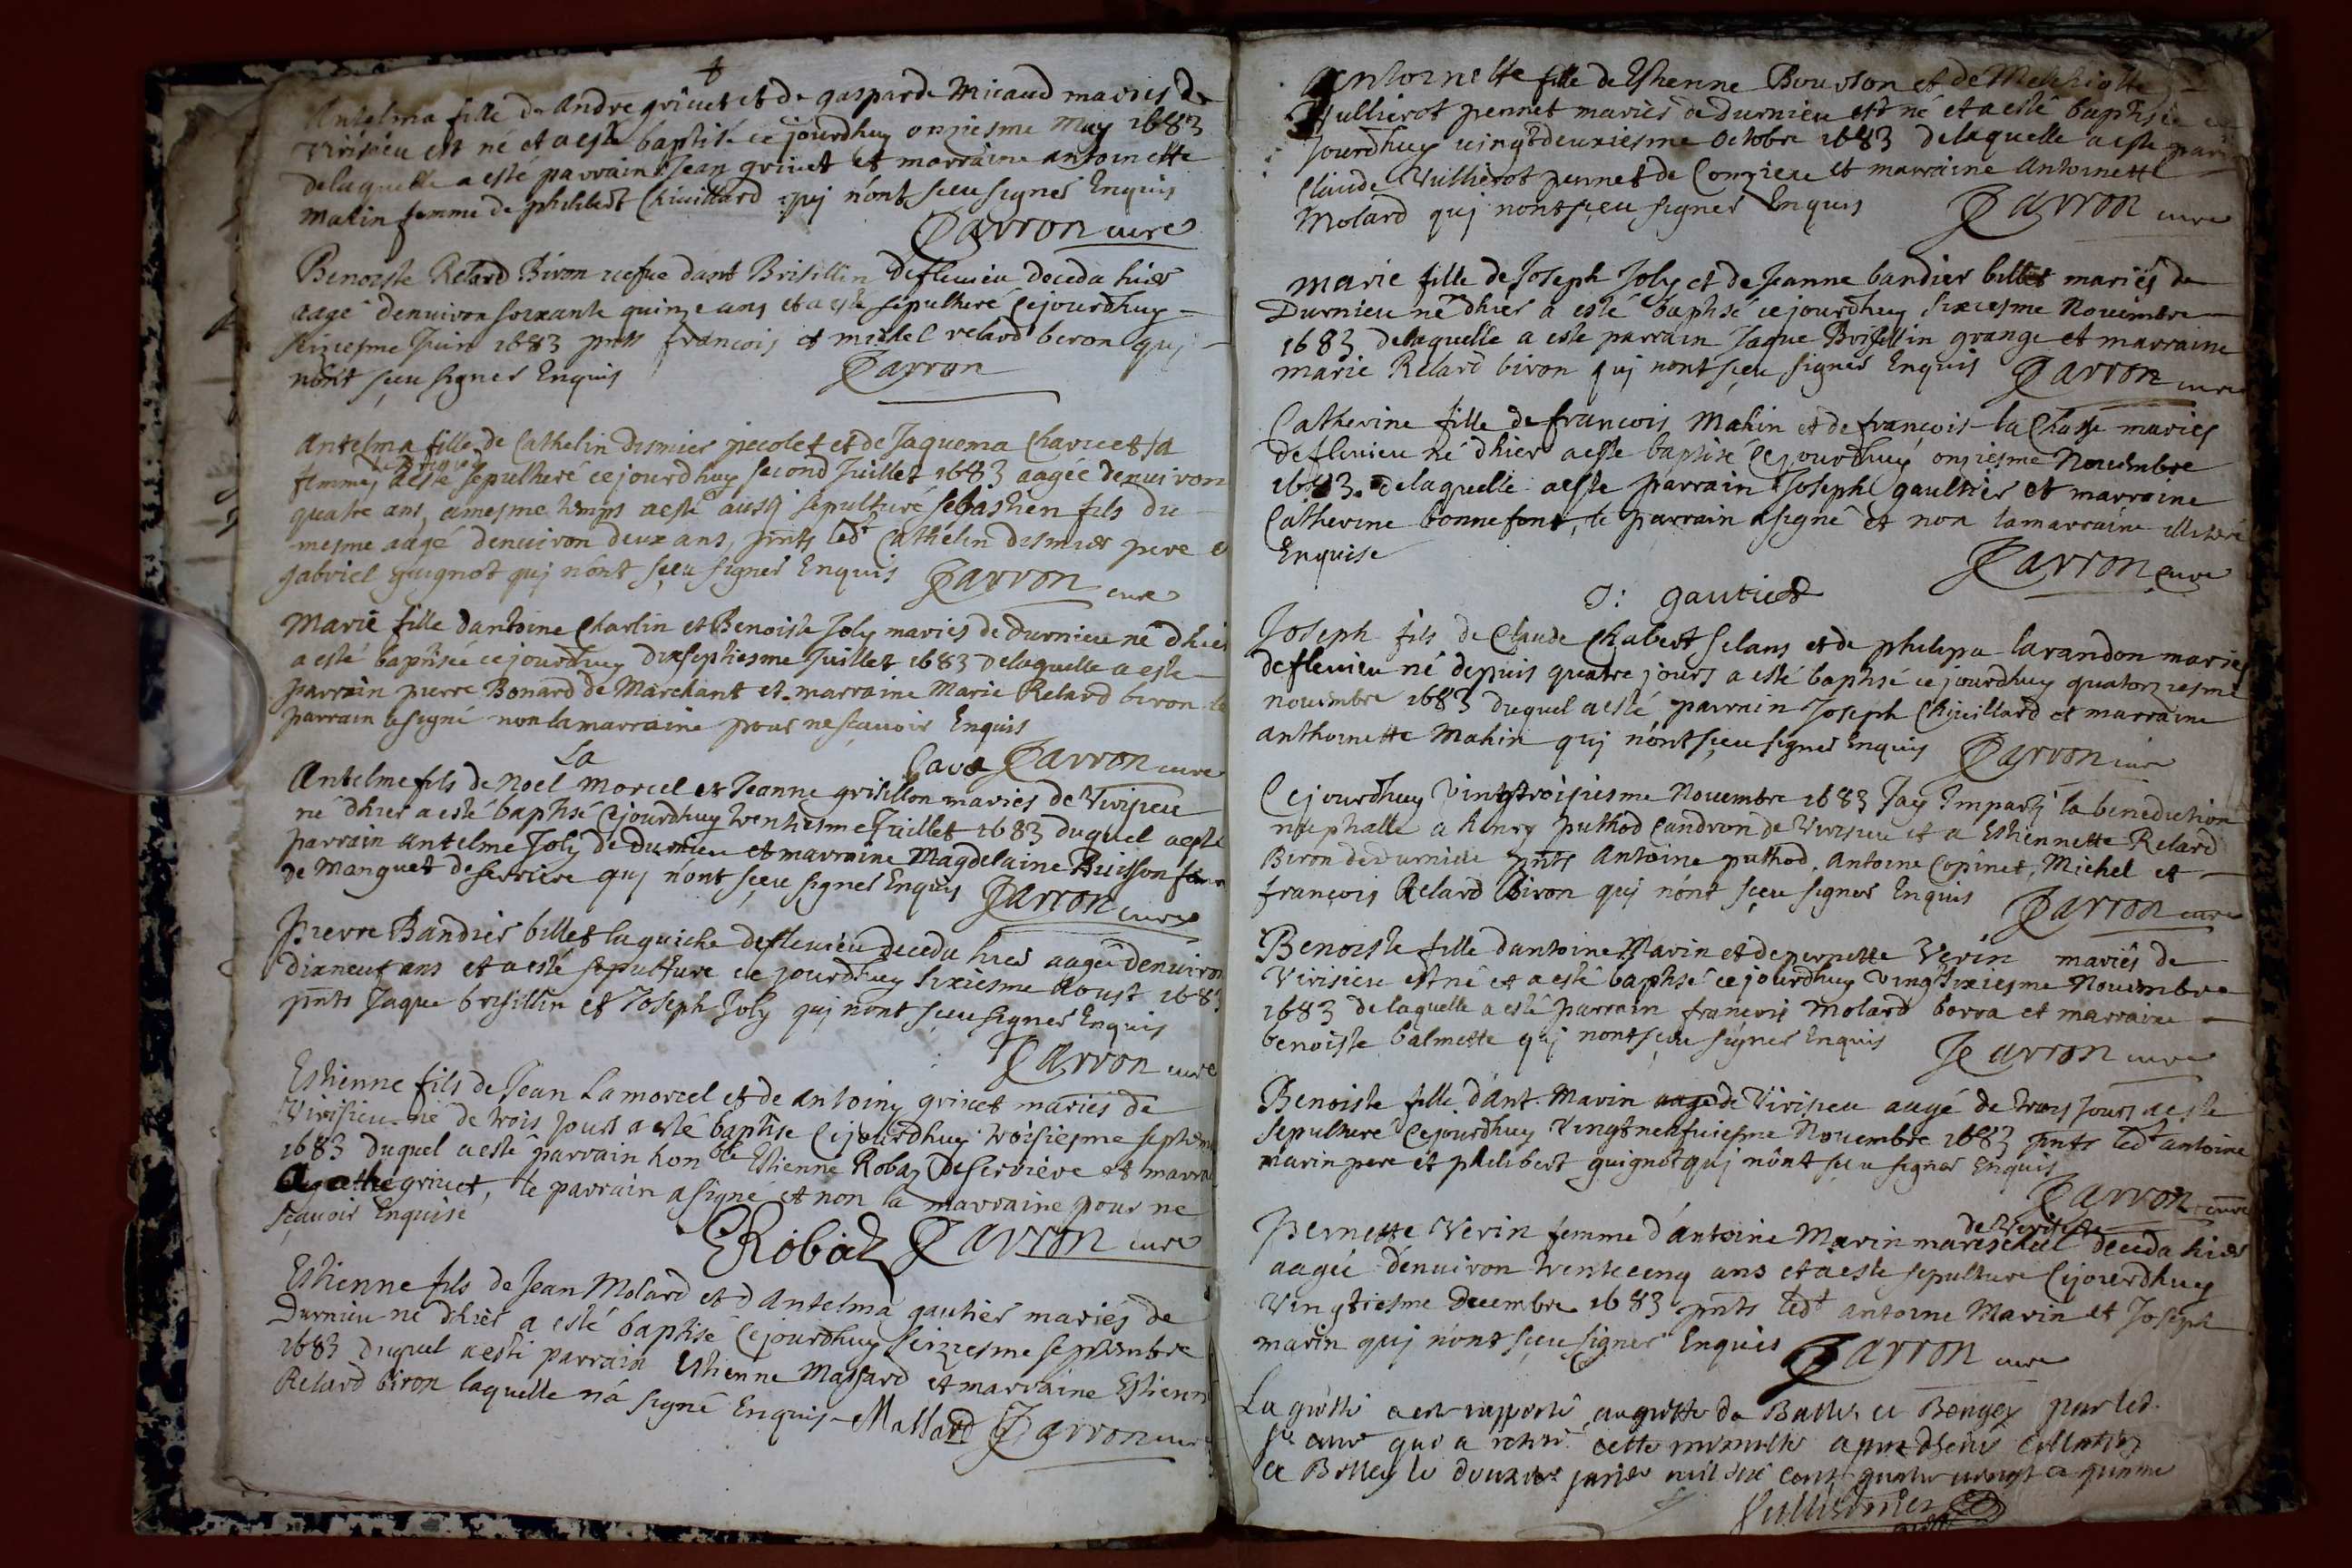 Antelma fille de andre grinet et de gasparde Micaud mariés de
Virisieu est né et a esté baptisé ce jourdhuy onziesme May 1683
delaquelle a esté parrain Jean grinet et marraine antoinette
Mahin femme de philibert Chivillard quj nont sceu signer Enquis
Parron curé
Benoiste Relard Biron vefue dant Brisillin deflevieu deceda hier
aagé denuiron soixante quinze ans et a esté sepulturé cejourdhuy
sixiesme Juin 1683 pnts francois et michel relard biron quj
nont sceu signer Enquis Parron
Antelma fille de Cathelin dismier pecolet et de Jaquema Charvet sa
femme aeste sepulturé cejourdhuy second Juillet 1683 aagée denuiron
quatre ans, amesme temps aesté aussj sepulturé sebastien fils du
mesme aagé denuiron deux ans, pnts led Cathelin dismier pere et
gabriel guignot quj nont sceu signer Enquis Parron curé
Marie fille dantoine Charlin et Benoiste Joly mariés de durnieu né dhier
a esté baptisée cejourdhuy dixseptiesme Juillet 1683 delaquelle a esté
parrain pierre Bonard de Marchant et marraine Marie Relard biron le
parrain a signé non la marraine pour ne scauoir Enquis
Parron curé
La
Antelme fils de Noel Morcel et Jeanne grisillon mariés de Virisieu
né dhier a esté baptisé cejourdhuy trentiesme Juillet 1683 duquel aesté
parrain antelme Joly de durnieu et marraine Magdelaine Buisson
de Manguet deserriere quj nont sceu signer Enquis Parron curé
Pierre Bandier billet laguiche deflevieu deceda hier aagé denuiron
dixneuf ans et a esté sepulturé ce jourdhuy sixiesme Aoust 1683
pnts Jaque brisillin et Joseph Joly quj nont sceu signer Enquis
Parron curé
Estienne fils de Jean Lamorcel et de antoine grinet mariés de
Virisieu né de trois jours a esté baptisé cejourdhuy troisiesme septem
1683 duquel a esté parrain hon ble Estienne Robaz deserriere et marra
grinet, le parrain a signé et non la marraine pour ne
scauoir Enquise
E Robaz Parron curé
Estienne fils de Jean Molard et d Antelma gautier mariés de
Durnieu né dhier a esté baptisé cejourdhuy seiziesme septembre
1683 duquel aesté parrain Estienne Massard et marraine Estienn
Relard biron laquelle n'a signé Enquis Massard Parron curé
Antoinette fille de Estienne Bourson et de Melchiotte
Vullierot pennet mariés de durnieu est né et a esté baptisée ce
jourdhuy vingtdeuxiesme Octobre 1683 delaquelle aeste parr
Claude Vullierot pennet de Conzieu et marraine Antoinette
Molard quj nont sceu signer Enquis Parron curé
Marie fille de Joseph Joly et de Jeanne bandier billet mariés de
Durnieu né dhier a esté baptisé cejourdhuy sixiesme Nouembre
1683 delaquelle a esté parrain Jaque Brisillin grange et marraine
marie Relard biron quj nont sceu signer Enquis Parron curé
Catherine fille de francois Mahin et de francois la Chasse mariés
deflevieu né dhier aeste baptisé cejourdhuy onziesme Nouembre
1683. delaquelle aeste parrain Joseph gaultier et marraine
Catherine bonnefont, le parrain a signé et non lamarraine illiterée
Enquise
Parron curé
J: gautier
Joseph fils de Claude Chabert selans et de philipa lavandon mariés
deflevieu né depuis quatre jours a esté baptisé cejourdhuy quatorziesme
nouembre 1683 duquel aesté parrain Joseph Chivillard et marraine
anthoinette Mahin quj nont sceu signer Enquis Parron curé
Cejourdhuy vingttroisiesme Nouembre 1683 Jay Imparty la benediction
nuphalle a henry puthod Candron de Virisieu et a Estiennette Relard
Biron de durnieu pnts Antoine puthod, Antoine Copinet, Michel et
francois Relard Biron quj nont sceu signer Enquis Parron curé
Benoiste fille dantoine Marin et depernette Verin mariés de
Virisieu est né et a esté baptisé ce jourdhuy vingtsixiesme Nouembre
1683 delaquelle a esté parrain francois Molard borra et marraine
benoiste balmette quj nont sceu signer Enquis Parron curé
Benoiste fille dant. Marin de Virisieu aagé de troys jours aeste
sepulturé cejourdhuy Vingtneufuiesme Nouembre 1683 pnts led antoine
marin pere et philibert guignot quj nont sceu signer Enquis
Parron curé
de Virisieu
Pernette Verin femme d'antoine Marin mareschal deceda hier
aagée denuiron trentecinq ans et aeste sepulturé cejourdhuy
Vingtiesme decembre 1683 pnts led antoine Marin et Joseph
marin quj nont sceu signer Enquis Parron curé
La grosse a este rapportée au greffe de Bally en Bengey par led.
sr curé qui a retiré cette minutte apres deüe collation
a Belley le douze Janvier mil six cent quatre vingt et quinze